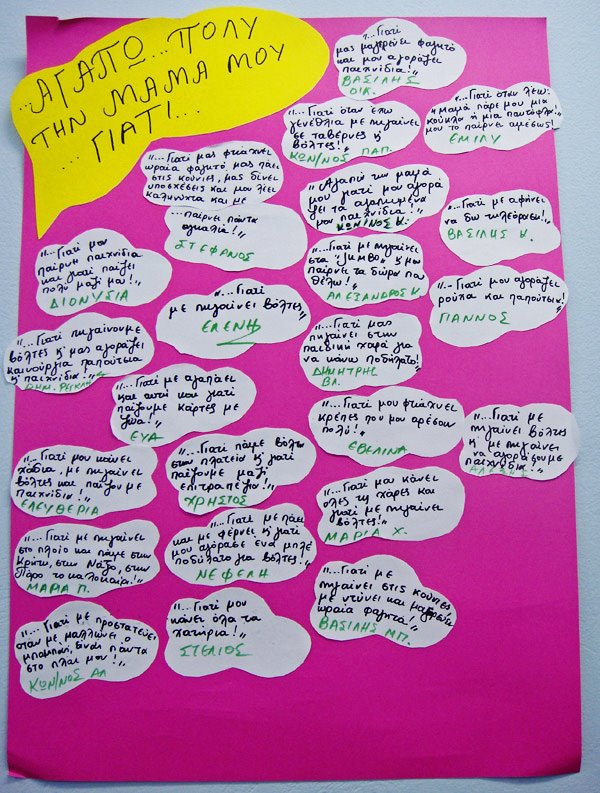 ...ΑΓΑΠΩ...ΠΟΛΥ
ΤΗΝ ΜΑΜΑ ΜΟΥ
...ΓΙΑΤΙ...
"...Γιατί
μας μαγειρεύει φαγητό
και μου αγοράζει
παιχνίδια!"
ΒΑΣΙΛΗΣ
ΟΙΚ.
"...Γιατί όταν λέω:
"Μαμά πάρε μου μια
κούκλα ή μια παντόφλα!"
μου το παίρνει αμέσως!"
ΕΜΙΛΥ
"...Γιατί όταν έχω
γενέθλια με πηγαίνει
σε ταβέρνες κ'
βόλτες!"
ΚΩΝ/ΝΟΣ ΠΑΠ.
"...Γιατί μας φτιάχνει
ωραία φαγητά μας πάει
στις κούνιες, μας δίνει
υποσχέσεις και μου λέει
καληνύχτα και με
...παίρνει πάντα
αγκαλιά!"
ΣΤΕΦΑΝΟΣ
"Αγαπώ την μαμά
μου γιατί μου αγορά
ζει τα αγαπημένα
μου παιχνίδια!"
ΚΩΝ/ΝΟΣ Κ.
"...Γιατί με αφήνει
να δω τηλεόραση!"
ΒΑΣΙΛΗΣ Κ.
"...Γιατί μου
παίρνει παιχνίδια
και γιατί παίζει
πολύ μαζί μου!"
ΔΙΟΝΥΣΙΑ
"...Γιατί με πηγαίνει
στα "JUMBO" κ' μου
παίρνει τα δώρα που
θέλω!"
ΑΛΕΞΑΝΔΡΟΣ Κ.
"...Γιατί μου αγοράζει
ρούχα και παπούτσια!"
ΓΙΑΝΝΟΣ
"...Γιατί
με πηγαίνει βόλτες"
ΕΛΕΝΗ
"...Γιατί πηγαίνουμε
βόλτες κ' μας αγοράζει
καινούργια παπούτσια
κ' παιχνίδια!"
ΔΗΜ.
"...Γιατί μας
πηγαίνει στην
παιδική χαρά για
να κάνω ποδήλατο!
ΔΗΜΗΤΡΗΣ
ΒΛ.
"...Γιατί με αγαπάει
και αυτή και γιατί
παίζουμε κάρτες με
ζώα!"
ΕΥΑ
"...Γιατί μου φτιάχνει
κρέπες που μου αρέσουν
πολύ!"
ΕΒΕΛΙΝΑ
"...Γιατί με
πηγαίνει βόλτες
κ' με πηγαίνει
να αγοράζουμε
παιχνίδια!"
"...Γιατί μου κάνει
χάδια, με πηγαίνει
βόλτες και παίζουμε
παιχνίδια!"
ΕΛΕΥΘΕΡΙΑ
"...Γιατί πάμε βόλτα
στην πλατεία κ' γιατί
παίζουμε μαζί
επιτραπέζια!"
ΧΡΗΣΤΟΣ
"...Γιατί μου κάνει
όλες τις χάρες και
γιατί με πηγαίνει
βόλτες!"
ΜΑΡΙΑ Χ.
"...Γιατί με πηγαίνει
στο πλοίο και πάμε στην
Κρήτη, στην Νάξο, στην
Πάρο το καλοκαίρι!"
ΜΑΡΙΑ Π.
"...Γιατί με πάει
και με φέρνει κ' γιατί
μου αγόρασε ένα μπλέ
ποδήλατο για βόλτες!"
ΝΕΦΕΛΗ
"...Γιατί με
πηγαίνει στις κούνιες
με ντύνει και μαγειρεύει
ωραία φαγητά!"
ΒΑΣΙΛΗΣ ΜΠ.
"...Γιατί με προστατεύει
όταν με μαλλώνει ο
μπαμπάς, είναι πάντα
στο πλάι μου!"
ΚΩΝ/ΝΟΣ ΑΛ
"...Γιατί μου
κάνει όλα τα
χατήρια!"
ΣΤΕΛΙΟΣ